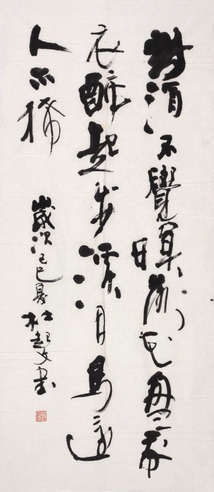 對酒不覺暝落花盈我
衣醉起步溪月鳥還
人亦稀
歲次己巳夏超文書